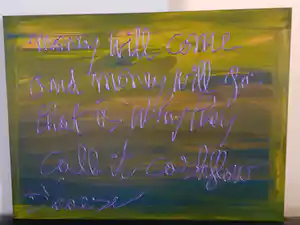 money will come
and money will go
that is why they
call it cashflow